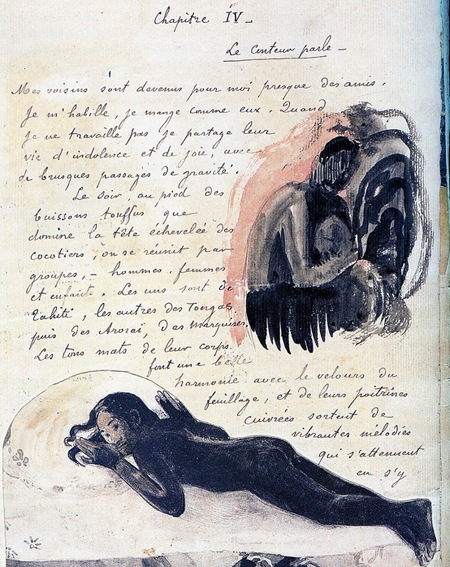 Chapitre IV_
Le Conteur parle_
Mes voisins sont devenus pour moi presque des amis.
Je m'habille, je mange comme eux. Quand
je ne travaille pas je partage leur
vie d'indolence et de joie, avec
de brusques passages de gravité.
Le soir, au pied des
buissons touffus que
domine la tête échevelée des
cocotiers, on se réunit par
groupes, _ hommes, femmes
et enfants. Les uns sont de
Tahiti, les autres des Tongas,
puis des Arorai, des Marquises.
Les tons mats de leur corps
font une belle
harmonie avec le velours du
feuillage, et de leurs poitrines
cuivrées sortent de
vibrantes mélodies
qui s'atténuent
en s'y